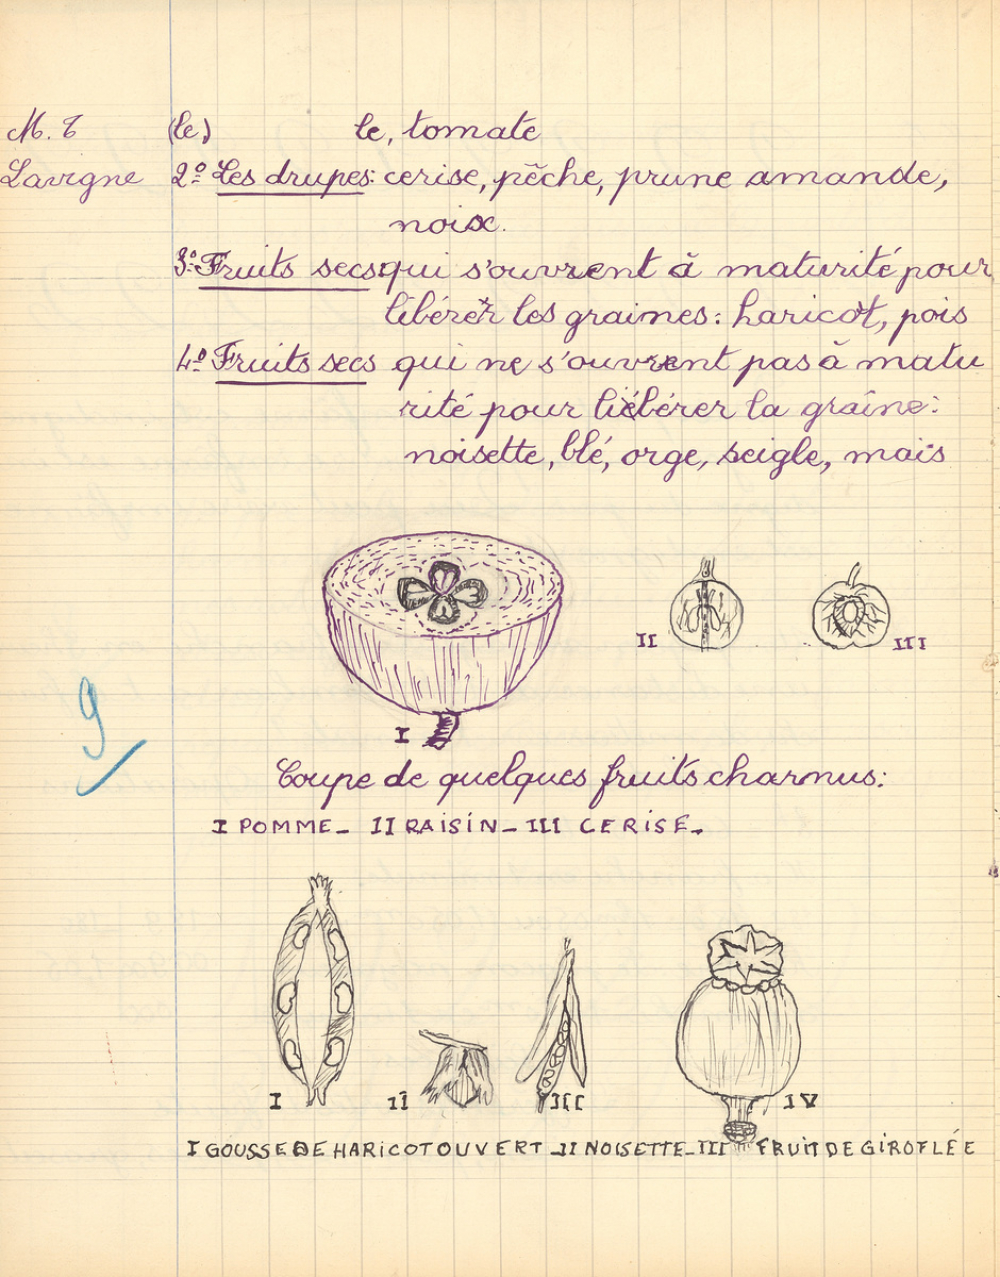 M. T (le) le, tomate
Lavigne 2º Les drupes: cerise, pêche, prune amande,
noix.
3º Fruits secs: qui s'ouvrent à maturité pour
libérer les graines: haricot, pois
4º Fruits secs qui ne s'ouvrent pas à matu
rité pour libérer la graîne:
noisette, blé, orge, seigle, maïs
II
III
I
9
Coupe de quelques fruits charnus:
I POMME_ II RAISIN_ III CERISE_
I
II
III
IV
I GOUSSE DE HARICOT OUVERT _II NOISETTE_III FRUIT DE GIROFLÉE